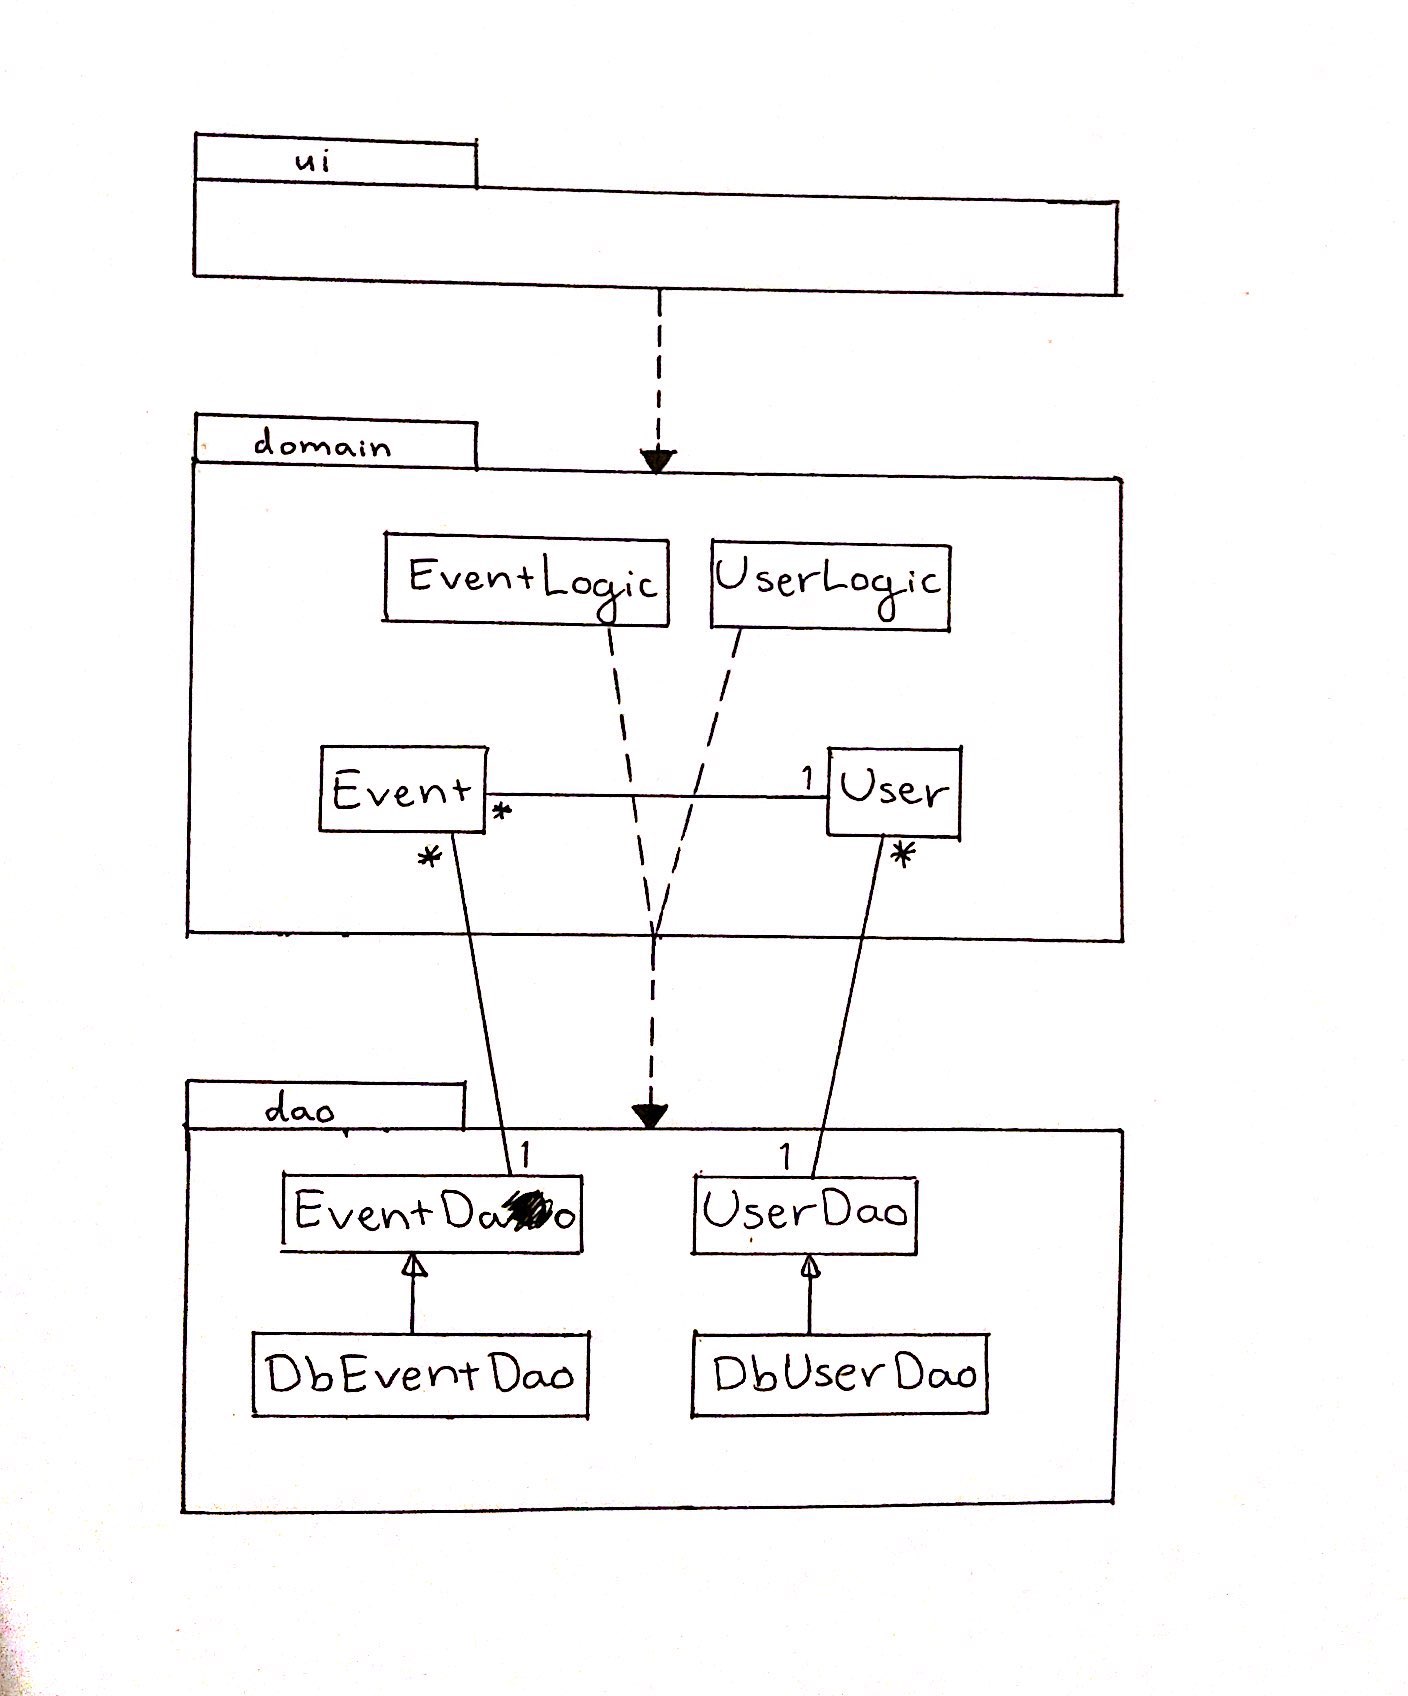 ui
domain
EventLogic UserLogic
Event * 1 User
* *
dao
1 1
EventDao UserDao
DbEventDao DbUserDao